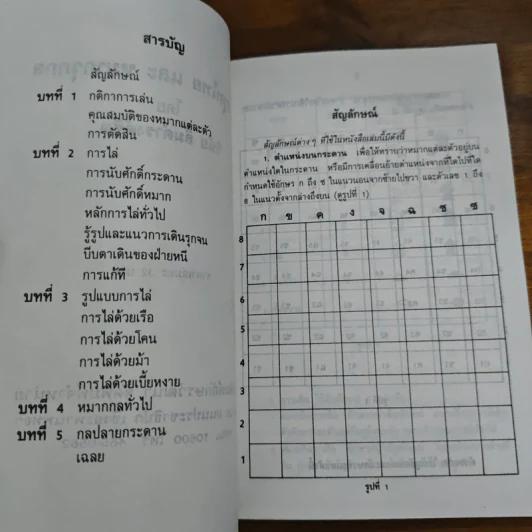 สารบัญ
สัญลักษณ์
บทที่ 1 กติกาการเล่น
คุณสมบัติของหมากแต่ละตัว
การตัดสิน
บทที่ 2 การไล่
การนับศักดิ์กระดาน
การนับศักดิ์หมาก
หลักการไล่ทั่วไป
รู้รูปและแนวการเดินรุกจน
บีบตาเดินของฝ่ายหนี
การแก้ที
บทที่ 3 รูปแบบการไล่
การไล่ด้วยเรือ
การไล่ด้วยโคน
การไล่ด้วยม้า
การไล่ด้วยเบี้ยหงาย
บทที่ 4 หมากกลทั่วไป
บทที่ 5 กลปลายกระดาน
เฉลย
สัญลักษณ์
สัญลักษณ์ต่าง ๆ ที่ใช้ในหนังสือเล่มนี้มีดังนี้
1. ตำแหน่งบนกระดาน เพื่อให้ทราบว่าหมากแต่ละตัวอยู่บน
ตำแหน่งใดในกระดาน หรือมีการเคลื่อนย้ายตำแหน่งจากที่ใดไปที่ใด
กำหนดใช้อักษร ก ถึง ช ในแนวนอนจากซ้ายไปขวา และตัวเลข 1 ถึง
8 ในแนวตั้งจากล่างถึงบน (ดูรูปที่ 1)
ก ข ค ง จ ฉ ช ซ
8
7
6
5
4
3
2
1
รูปที่ 1